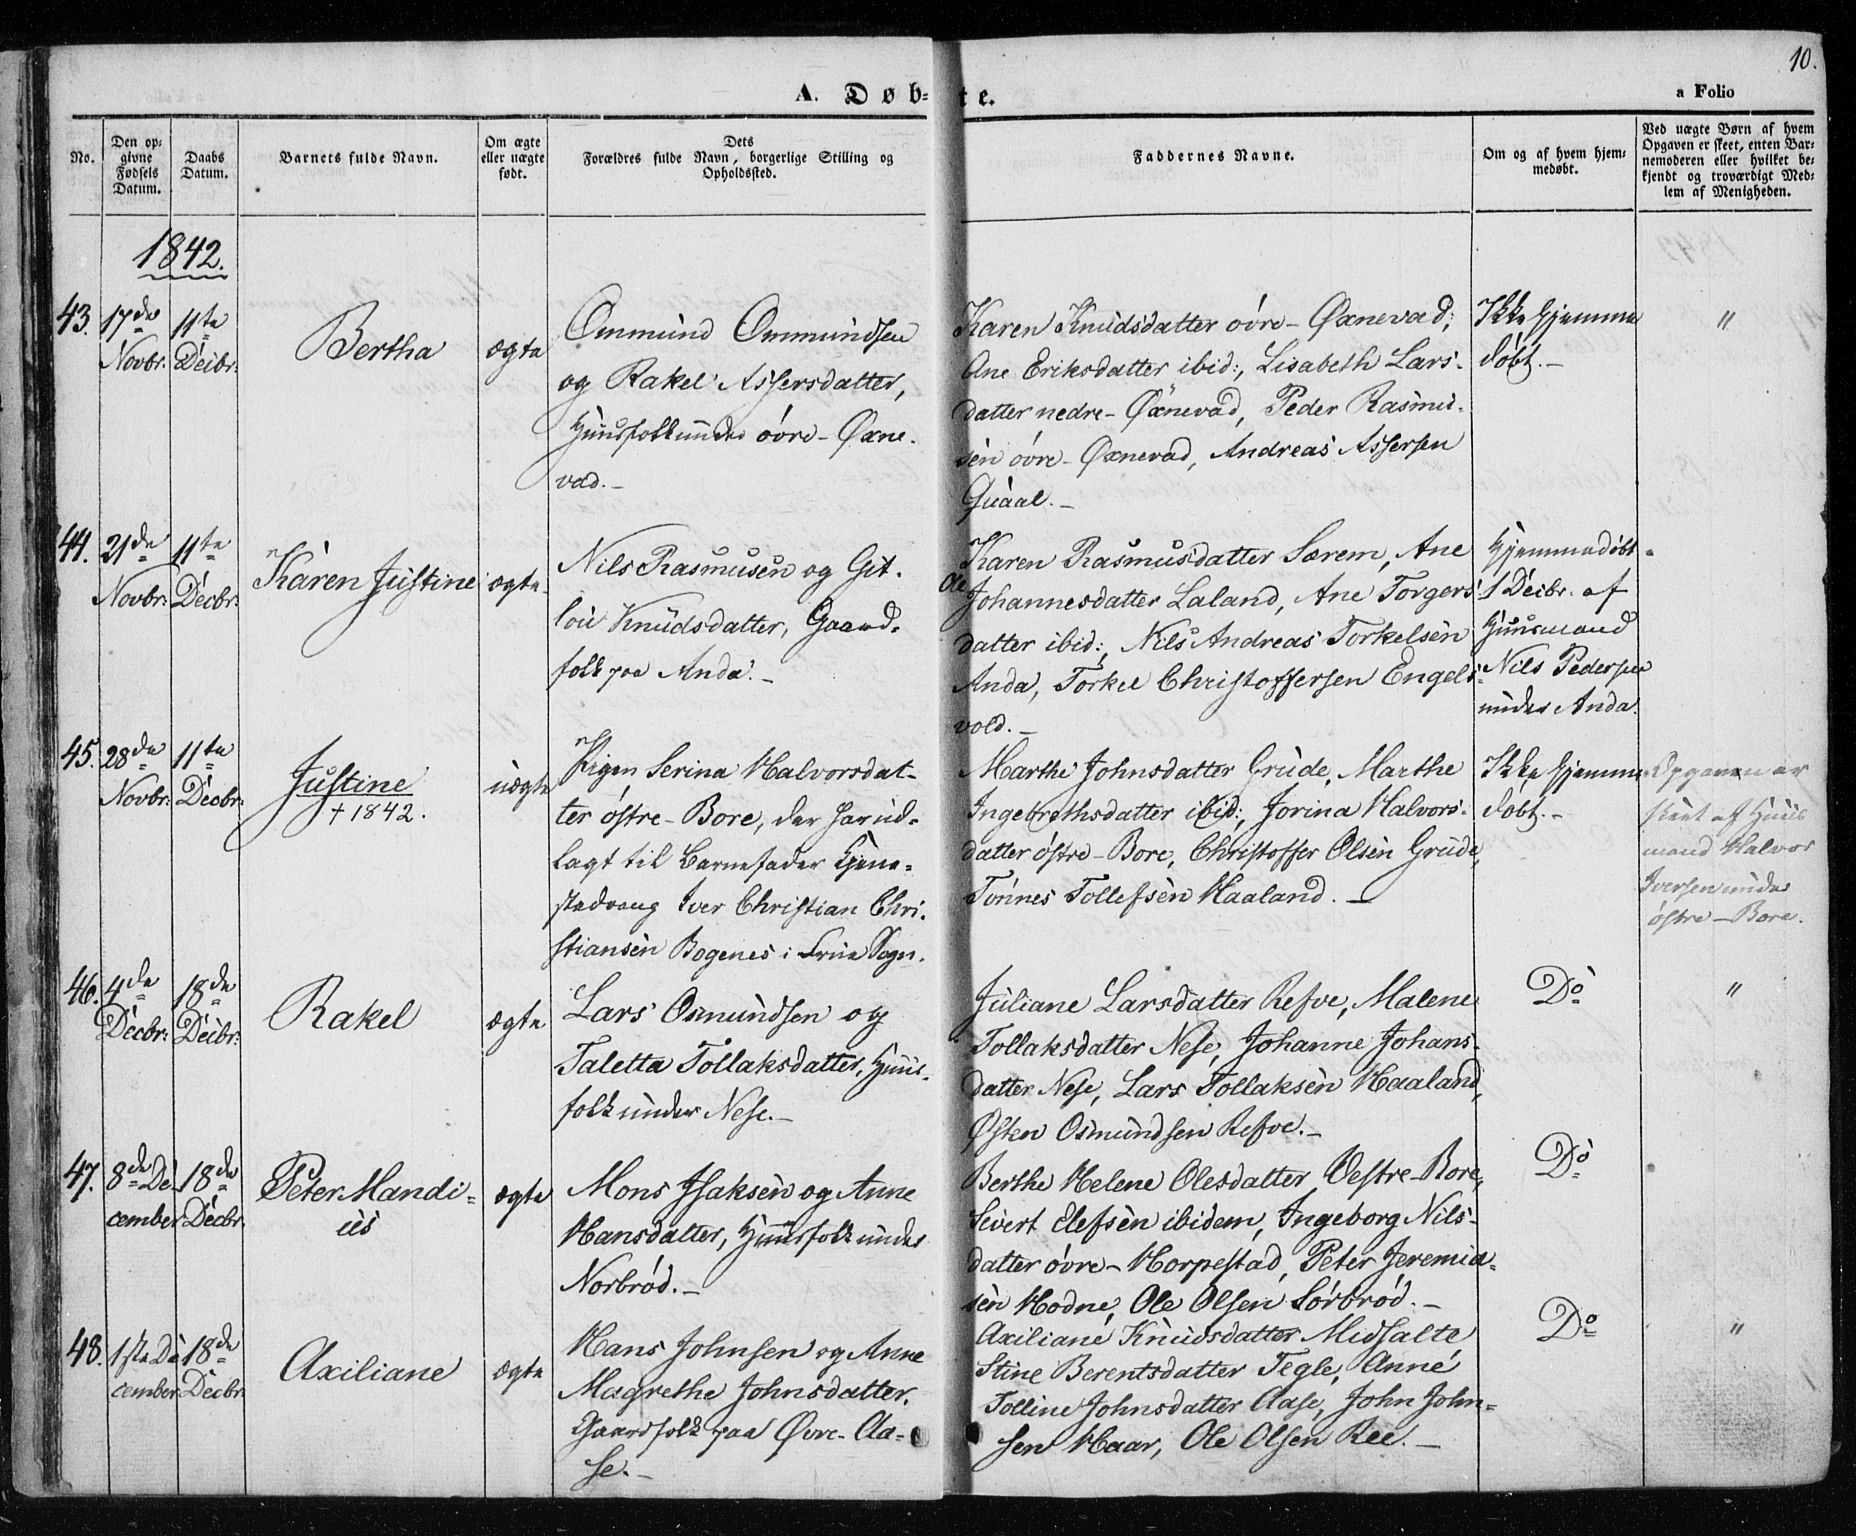 10.
A. Døb-te.
a Folio
No.
Den op-
givne
Fødsels
Datum.
Daabs
Datum.
Barnets fulde Navn.
Om ægte
eller uægte
født.
Dets
Forældres fulde Navn, borgerlige Stilling og
Opholdssted.
Faddernes Navne.
Om og af hvem hjem-
medøbt.
Ved uægte Børn af hvem
Opgaven er skeet, enten Bar-
nemoderen eller hvilket be-
kjendt og troværdigt Med-
lem af Menigheden.
1842.
43.
17de
Novbr:
11te
Decbr:
Bertha
ægte
Ommund Ommundsen
og Rakel Assersdatter,
Huusfolk under övre-Øxne-
vad.-
Karen Knudsdatter övre-Øxnevad;
Ane Eriksdatter ibid:, Lisabeth Lars-
datter nedre-Øxnevad, Peder Rasmu-
sen övre-Øxnevad, Andreas Assersen
Quaal.-
Ikke hjemme
döbt.-
"
44.
21de
Novbr:
11te
Decbr:
Karen Justine
ægte
Nils Rasmusen og Git-
lou Knudsdatter, Gaard-
folk paa Anda.-
Karen Rasmusdatter Særem, Ane
Johannesdatter Laland, Ane Torgers-
datter ibid:, Nils Andreas Torkelsen
Anda, Torkel Christoffersen Engels-
vold.-
Hjemmedöbt
1 Decbr. af
Huusmand
Nils Pedersen
under Anda.
45.
28de
Novbr:
11te
Decbr:
Justine
+ 1842.
uægte
Pigen Serina Halvorsdat-
ter östre-Bore, der har ud-
lagt til Barnefader Tjene-
stedreng Iver Christian Chri-
stiansen Bogenes i Frue Sogn.
Marthe Johnsdatter Grude, Marthe
Ingebrethsdatter ibid:, Jorina Halvors-
datter östre-Bore, Christoffer Olsen Grude,
Tönnes Tollefsen Haaland.-
Ikke hjemme
döbt.-
Opgaven er
skeet af Huus
mand Halvor
Iversen under
östre-Bore.
46.
4de
Decbr:
18de
Decbr:
Rakel
ægte
Lars Osmundsen og
Taletta Tollaksdatter, Huus-
folk under Nese.-
Juliane Larsdatter Refve, Malene
Tollaksdatter Nese, Johanne Johans-
datter Nese, Lars Tollaksen Haaland,
Östen Osmundsen Refve.-
Do
"
47.
8de De-
cember
18de
Decbr.
Peter Mandi-
us
ægte
Mons Isaksen og Anne
Hansdatter, Huusfolk under
Norbröd.-
Berthe Helene Olesdatter Vestre-Bore,
Sivert Elefsen ibidem, Ingeborg Nils-
datter övre-Horpestad, Peter Jeremia-
sen Hodne, Ole Olsen Sörbröd.-
Do
48.
1ste De
cember
18de
Decbr
Axiliane
ægte
Hans Johnsen og Anne
Magrethe Johnsdatter.
Gaardfolk paa Øvre-Aa-
se.-
Axiliane Knudsdatter Midsalte
Stine Berentsdatter Tegle, Anne
Tolline Johnsdatter Aase, John John-
sen Haar, Ole Olsen Ree.-
Do
"